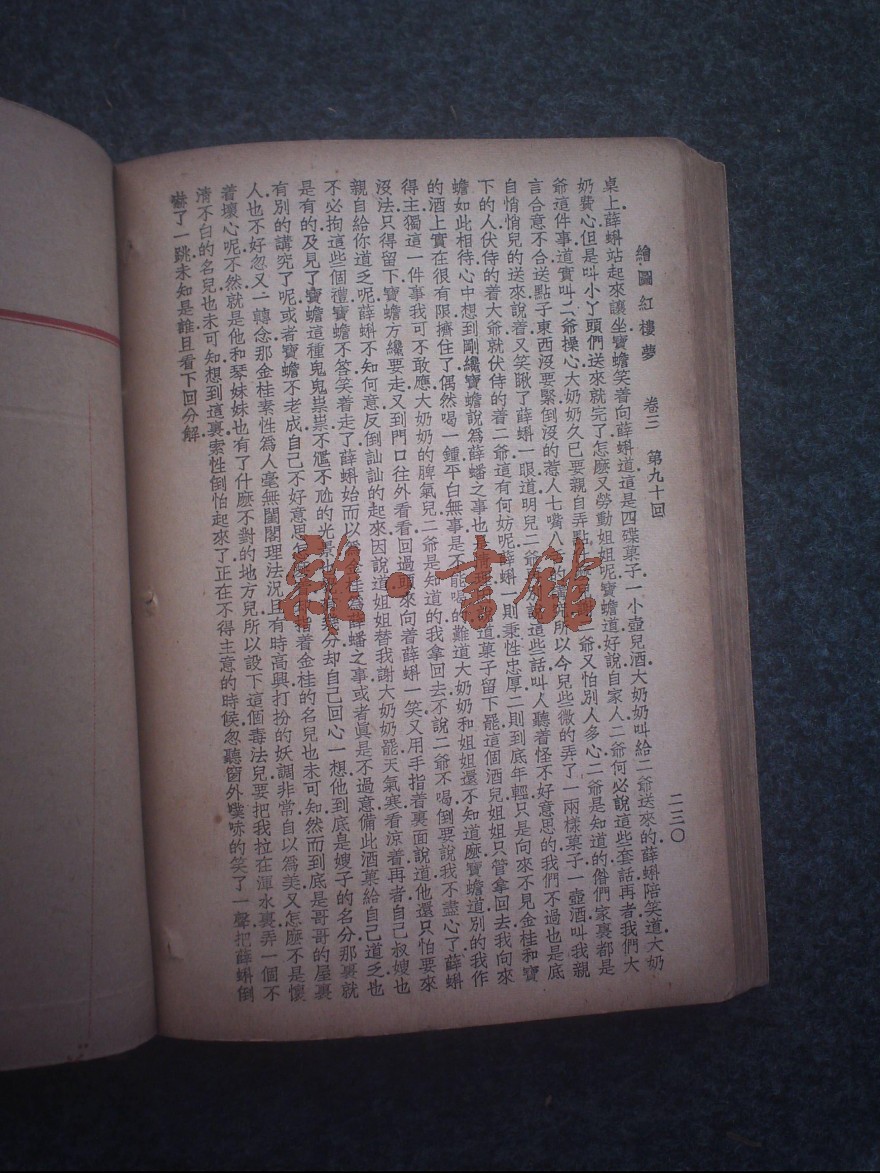 繪圖紅樓夢　卷三　第九十回　二三〇
桌上．薛蝌站起來讓坐．寶蟾笑着向薛蝌道這是四碟菓子一小壺兒酒大奶奶叫給二爺送來的．薛蝌陪笑道大奶
奶費心但是叫小丫頭們送來就完了怎麼又勞動姐姐呢．寶蟾道好說自家人二爺何必說這些套話再者我們大
爺這件事道實叫二爺操心大奶奶久已要親自弄點 爺又怕別人多心二爺是知道的俻們家裏都是
言合意不合送點子東西沒要緊倒沒的惹人七嘴八 所以今兒些微的弄了一兩樣菓子一壺酒叫我親
自悄悄兒的送來說着又笑瞅了薛蝌一眼道明兒二爺 說這些話叫人聽着怪不好意思的我們不過也是底
下的人伏侍的着大爺就伏侍的着二爺這有何妨呢．薛蝌一則秉性忠厚二則到底年輕只是向來不見金桂和寶
蟾如此相待心中想到剛纔寶蟾說爲薛蟠之事也 道菓子留下罷這個酒兒姐姐只管拿回去我向來
的酒上實在很有限擠住了偶然喝一鍾平白無事是不能喝的難道大奶奶和姐姐還不知道麼．寶蟾道別的我作
得主獨這一件事我可不敢應大奶奶的脾氣兒二爺是知道的我拿回去不說二爺不喝倒要說我不盡心了．薛蝌
沒法只得留下．寶蟾方纔要走又到門口往外看看回過頭來向着薛蝌一笑又用手指着裏面說道他還只怕要來
親自給你道乏呢．薛蝌不知何意反倒訕訕的起來因說道姐姐替我謝大奶奶罷天氣寒看涼着再者自己叔嫂也
不必拘這些個禮．寶蟾不答笑着走了．薛蝌始而以爲金桂爲薛蟠之事或者眞是不過意備此酒菓給自己道乏也
是有的．及見了寶蟾這種鬼鬼祟祟不尷不尬的光景 分却自己回心一想他到底是嫂子的名分那裏就
有別的講究了呢或者寶蟾不老成自己不好意思 指着金桂的名兒也未可知然而到底是哥哥的屋裏
人也不好．忽又一轉念那金桂素性爲人毫無閨閣理法況且有時高興打扮的妖調非常自以爲美又怎麼不是懷
着壞心呢．不然就是他和琴妹妹也有了什麼不對的地方兒所以設下這個毒法兒要把我拉在渾水裏弄一個不
清不白的名兒也未可知．想到這裏索性倒怕起來了．正在不得主意的時候忽聽窗外噗哧的笑了一聲把薛蝌倒
嚇了一跳．未知是誰且看下回分解．
雜·書館